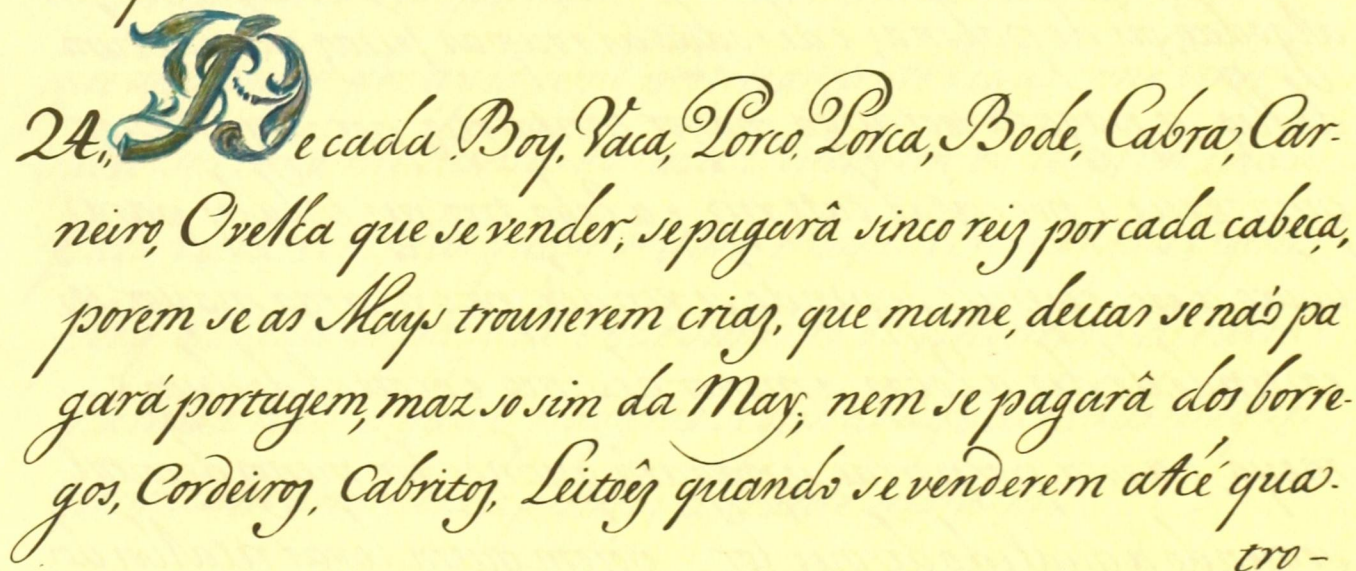 24,, De cada Boy, Vaca, Porco, Porca, Bode, Cabra, Car-
neiro, Ovelha que se vender, se pagarâ sinco reiz por cada cabeça,
porem se as Mays trouxerem criaz, que mame, destas se naõ pa
gará portagem, maz so sim da May; nem se pagarâ dos borre-
gos, Cordeiroz, Cabritoz, Leitoêz quando se venderem athé qua-
tro-